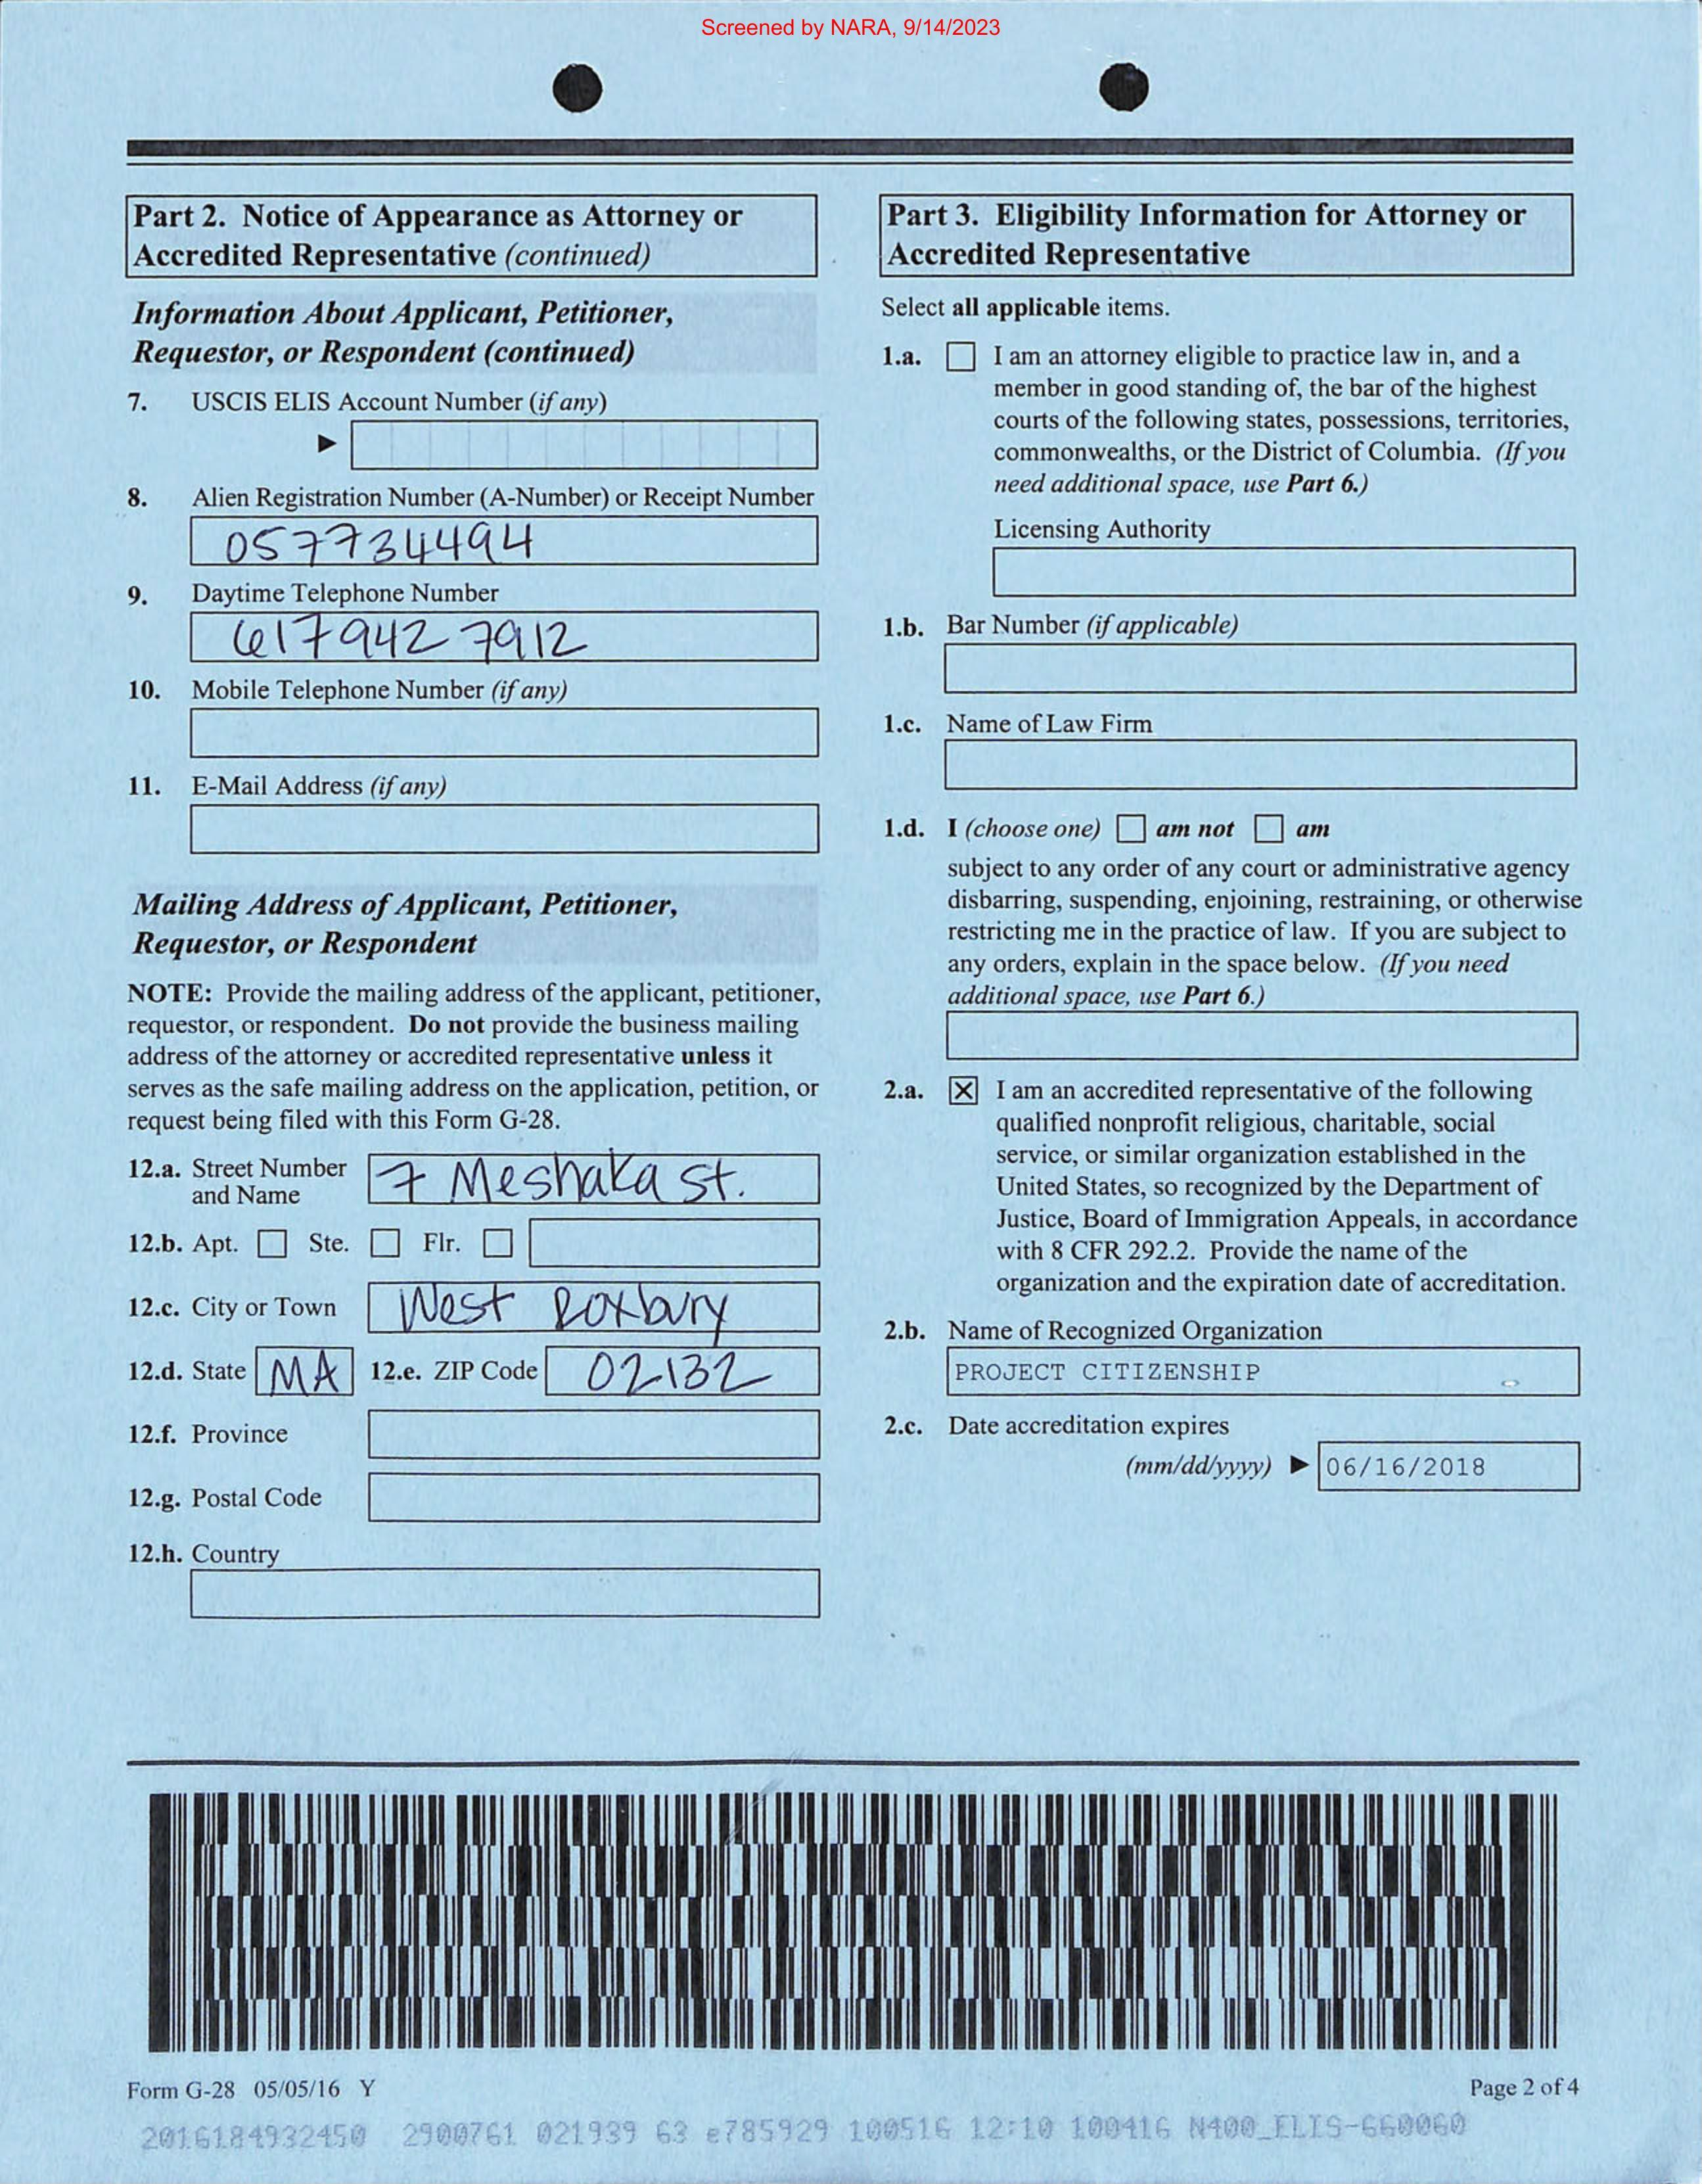 Screened by NARA, 9/14/2023
Part 2. Notice of Appearance as Attorney or
Accredited Representative (continued)
Information About Applicant, Petitioner,
Requestor, or Respondent (continued)
7. USCIS ELIS Account Number (if any)
8. Alien Registration Number (A-Number) or Receipt Number
057734494
9. Daytime Telephone Number
617 942 7912
10. Mobile Telephone Number (if any)
11. E-Mail Address (if any)
Mailing Address of Applicant, Petitioner,
Requestor, or Respondent
NOTE: Provide the mailing address of the applicant, petitioner,
requestor, or respondent. Do not provide the business mailing
address of the attorney or accredited representative unless it
serves as the safe mailing address on the application, petition, or
request being filed with this Form G-28.
12.a. Street Number
and Name
7 Meshaka St.
12.b. Apt. Ste. Flr.
12.c. City or Town West Roxbury
12.d. State MA 12.e. ZIP Code 02132
12.f. Province
12.g. Postal Code
12.h. Country
Part 3. Eligibility Information for Attorney or
Accredited Representative
Select all applicable items.
1.a. I am an attorney eligible to practice law in, and a
member in good standing of, the bar of the highest
courts of the following states, possessions, territories,
commonwealths, or the District of Columbia. (If you
need additional space, use Part 6.)
Licensing Authority
1.b. Bar Number (if applicable)
1.c. Name of Law Firm
1.d. I (choose one) am not am
subject to any order of any court or administrative agency
disbarring, suspending, enjoining, restraining, or otherwise
restricting me in the practice of law. If you are subject to
any orders, explain in the space below. (If you need
additional space, use Part 6.)
2.a. X I am an accredited representative of the following
qualified nonprofit religious, charitable, social
service, or similar organization established in the
United States, so recognized by the Department of
Justice, Board of Immigration Appeals, in accordance
with 8 CFR 292.2. Provide the name of the
organization and the expiration date of accreditation.
2.b. Name of Recognized Organization
PROJECT CITIZENSHIP
2.c. Date accreditation expires
(mm/dd/yyyy) 06/16/2018
Form G-28 05/05/16 Y
Page 2 of 4
2016184932450 2900761 021939 63 e785929 100516 12:10 100416 N400_ELIS-660060